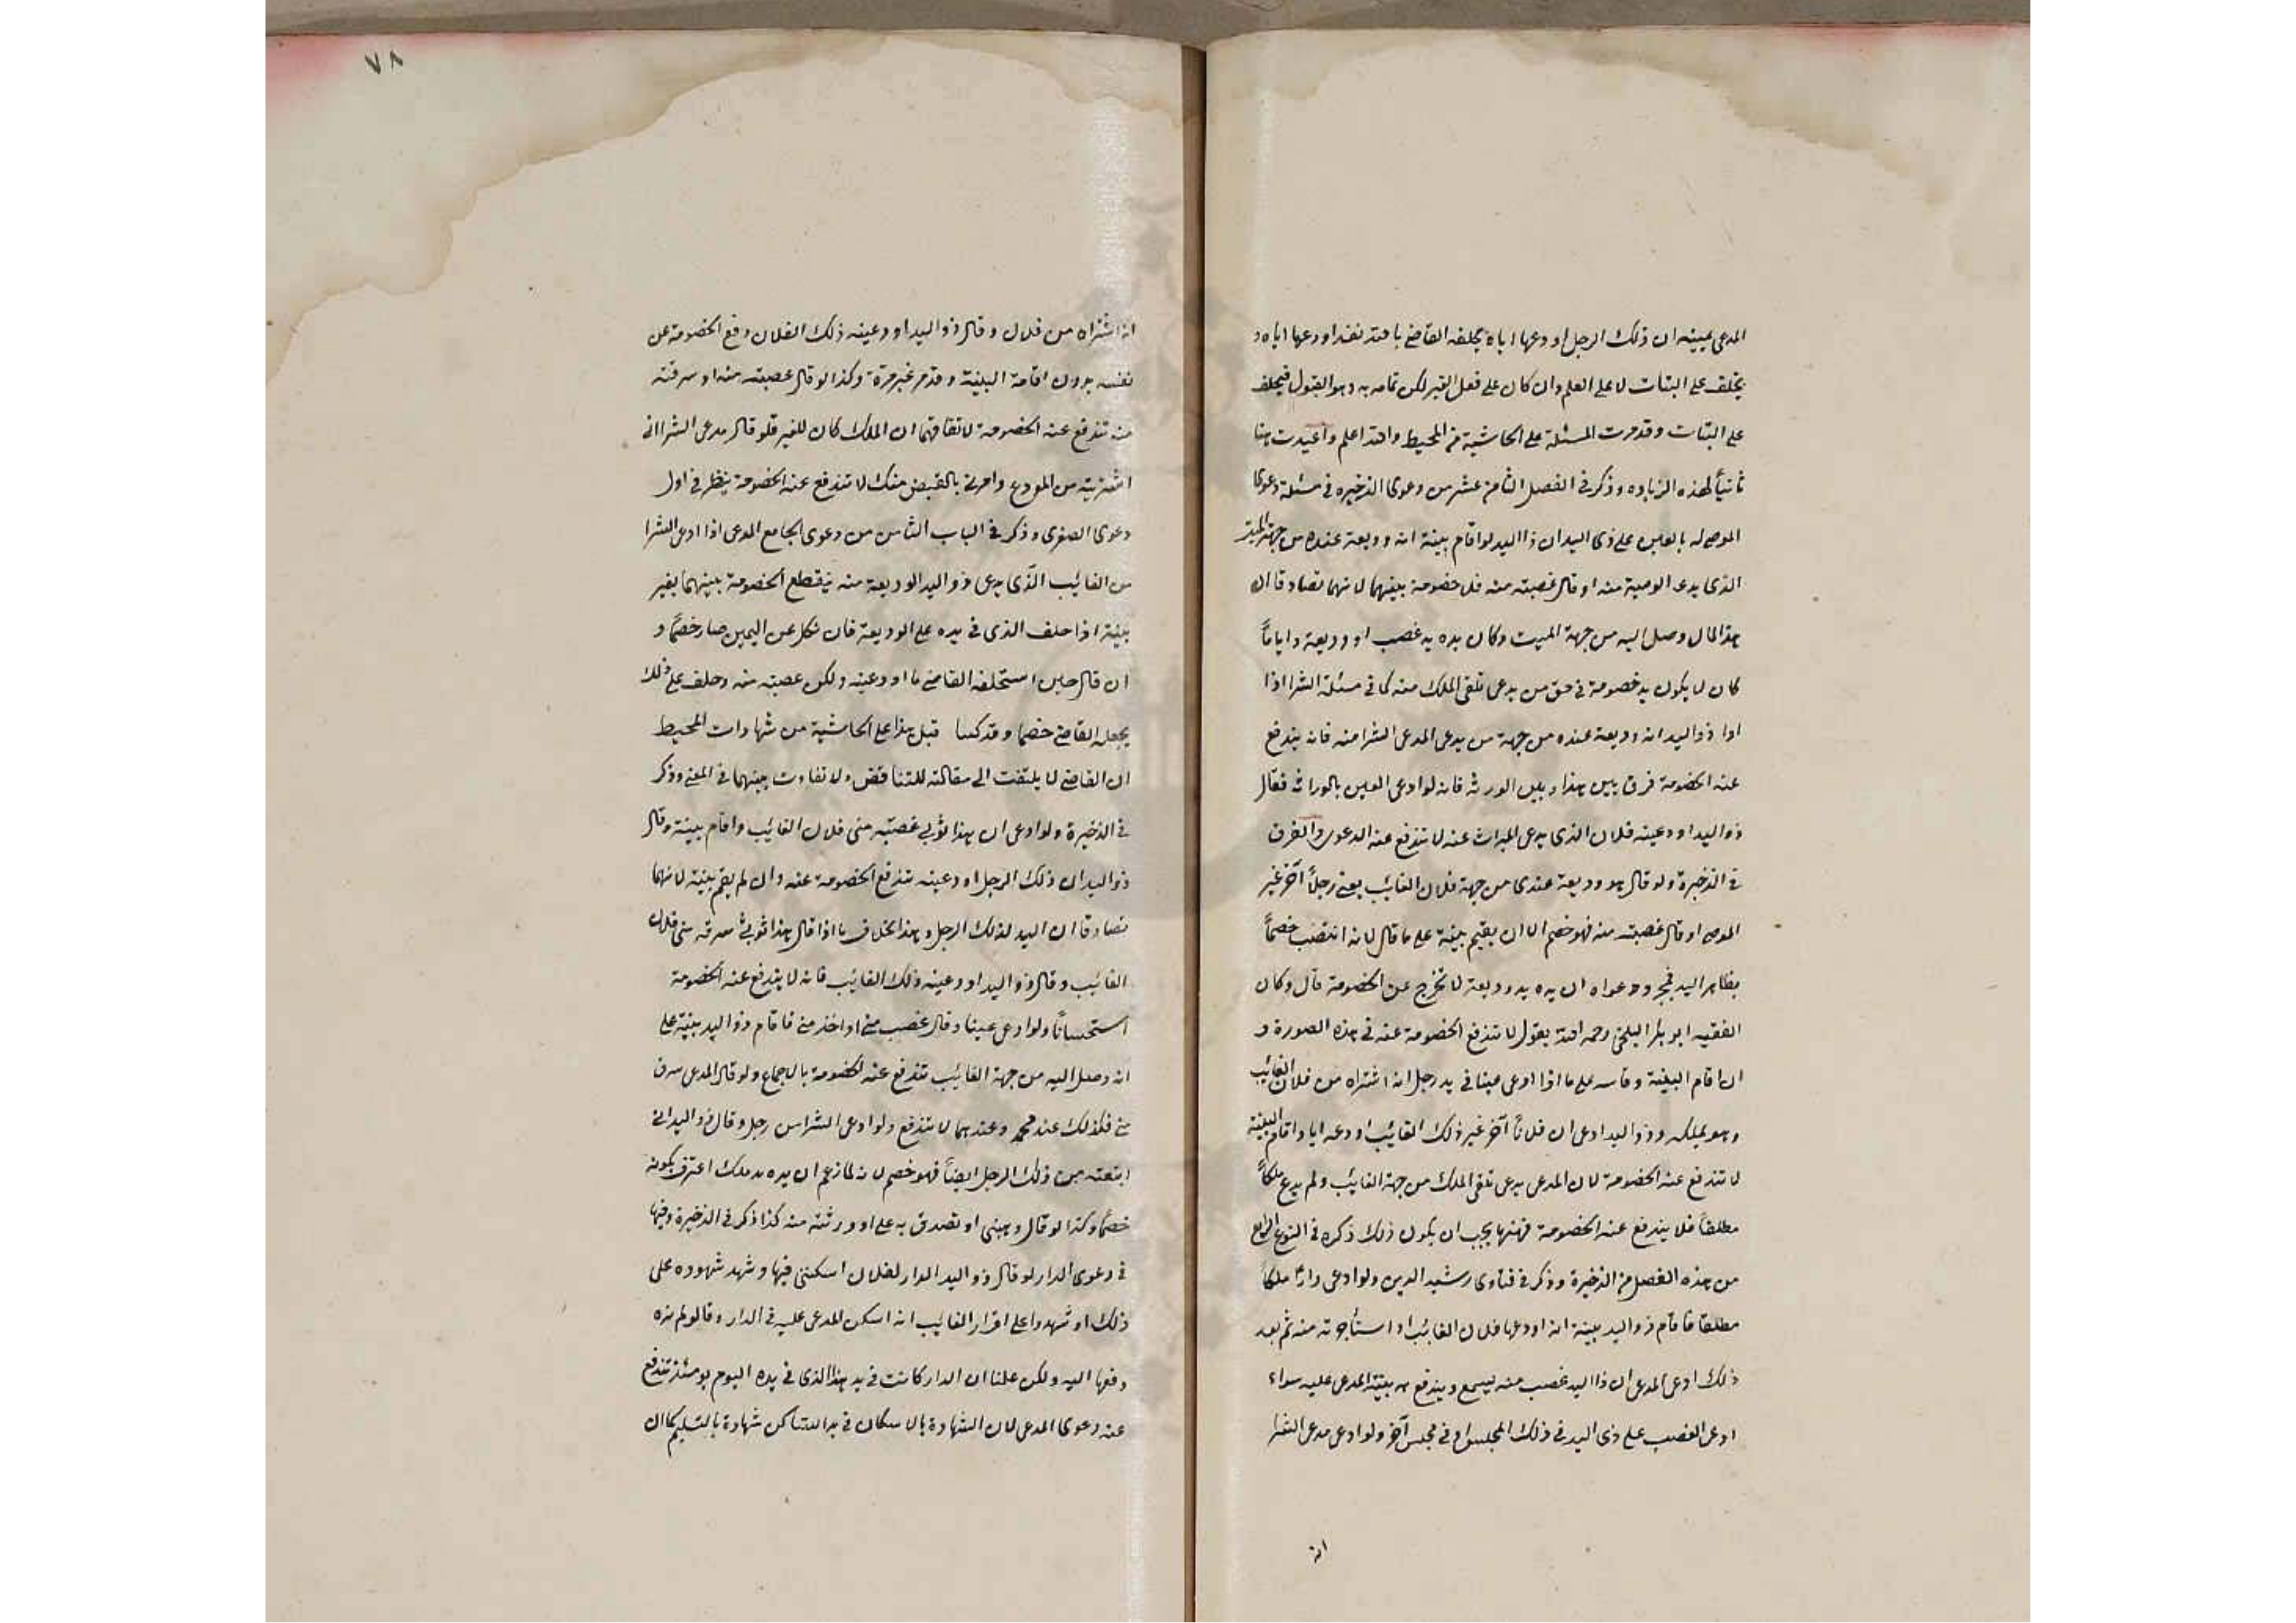 المدعى ببينة ان ذلك الرجل اودعها اياه يحلفه القاضى بالله لقد اودعها اياه و
يحلف على البتات لا على العلم وان كان على فعل الغير لكن تمامه به وهو القبول فيحلف
على البتات وقد مرت المسئلة على الحاشية من المحيط والله اعلم واعيدت هنا
ثانيأ لهذه الزياده وذكر فى الفصل الثامن عشر من دعوى الذخيره فى مسئلة دعوى
الموصى له بالعين على ذى اليد ان ذا اليد لو اقام بينة انه وديعة عنده من جهة الميت
الذى يدعى الوصية منه او قال غصبته منه فلا خصومة بينهما لانهما تصادقا ان
هذا المال وصل اليه من جهة الميت وكان يده يد غصب او وديعة واياماً
كان لا يكون يد خصومة فى حق من يدعى تلقى الملك منه كما فى مسئلة الشرا اذا
ادا ذو اليد انه وديعة عنده من جهة من يدعى المدعى الشرا منه فانه يندفع
عنه الخصومة فرق بين هذا وبين الورثه فانه لو ادعى العين بالوراثه فقال
ذو اليد اودعينه فلان الذى يدعى الميراث عنه لا تندفع عنه الدعوى والفرق
فى الذخيرة ولو قال هو وديعة عندى من جهة فلان الغائب يعنى رجلاً آخر غير
الموصى او قال غصبت منه فهو خصم الا ان يقيم بينة على ما قال لانه انتصب خصماً
بظاهر اليد فبمجرد دعواه ان يده يد وديعة لا تخرج عن الخصومة قال وكان
الفقيه ابو بكر البلخى رحمه الله يقول لا تندفع الخصومة عنه فى هذه الصورة و
ان اقام البينة وقاسه على ما اذا ادعى عينا فى يد رجل انه اشتراه من فلان الغائب
وهو يملكه وذو اليد ادعى ان فلاناً آخر غير ذلك الغائب اودعه اياه واقام البينة
لا تندفع عنه الخصومة لان المدعى يدعى تلقى الملك من جهة الغائب ولم يدع ملكاً
مطلقاً فلا يندفع عنه الخصومة فههنا يجب ان يكون ذلك ذكره فى النوع الرابع
من هذه الفصل من الذخيرة وذكر فى فتاوى رشيد الدين ولو ادعى داراً ملكاً
مطلقا فاقام ذو اليد ببينة انه اودعها فلان الغائب او استأجرته منه ثم بعد
ذلك ادعى المدعى ان ذا اليد غصب منه يسمع ويندفع به بينة المدعى عليه سواء
ادعى الغصب على ذى اليد فى ذلك المجلس او فى مجلس آخر ولو ادعى مدعى الشرا
انه
٧٨
انه اشتراه من فلان وقال ذو اليد اودعينه ذلك الفلان دفع الخصومة عن
نفسه بدون اقامة البينة وقد مر غير مرة وكذا لو قال غصبته منه او سرقته
منه تندفع عنه الخصومة لاتفاقهما ان الملك كان للغير فلو قال مدعى الشرا انى
اشتريته من المودع وامرنى بالقبض منك لا تندفع عنه الخصومة ينظر فى اول
دعوى الصغرى وذكر فى الباب الثامن من دعوى الجامع المدعى اذا ادعى الشرا
من الغائب الذى يدعى ذو اليد الوديعة منه ينقطع الخصومة بينهما بغير
بينة اذا حلف الذى فى يده على الوديعة فان نكل عن اليمين صار خصماً و
ان قال حين استحلفه القاضى ما اودعينه ولكن غصبته منه وحلف على ذلك
يجعله القاضى خصما وقد كتبنا قبل هذا على الحاشية من شهادات المحيط
ان القاضى لا يلتفت الى مقالته للتناقض ولا تفاوت بينهما فى المعنى وذكر
فى الذخيرة ولو ادعى ان هذا ثوبى غصبته منى فلان الغائب واقام بينة وقال
ذو اليد ان ذلك الرجل اودعينه تندفع الخصومة عنه وان لم يقم بينة لانهما
تصادقا ان اليد لذلك الرجل وهذا بخلاف ما اذا قال هذا ثوبى سرقه منى فلان
الغائب وقال ذو اليد اودعينه ذلك الغائب فانه لا يندفع عنه الخصومة
استحساناً ولو ادعى عينا وقال غصب منى او اخذ منى فاقام ذو اليد بينة على
انه وصل اليه من جهة الغائب تندفع عنه الخصومة بالاجماع ولو قال المدعى سرق
منى فكذلك عند محمد وعندهما لا تندفع ولو ادعى الشرا من رجل وقال ذو اليد انى
ابتعته من ذلك الرجل ايضاً فهو خصم لانه لما زعم ان يده يد ملك اعترف بكونه
خصماً وكذا لو قال وهبنى او تصدق به على او ورثته منه كذا ذكر فى الذخيرة وفيها
فى دعوى الدار لو قال ذو اليد الدار لفلان اسكننى فيها وشهد شهوده على
ذلك او شهدوا على اقرار الغائب انه اسكن المدعى عليه فى الدار وقالو لم نره
دفعها اليه ولكن علمنا ان الدار كانت فى يد هذا الذى فى يده اليوم يومئذ تندفع
عنه دعوى المدعى لان الشهادة بالاسكان فى يد الساكن شهادة بالتسليم كما ان